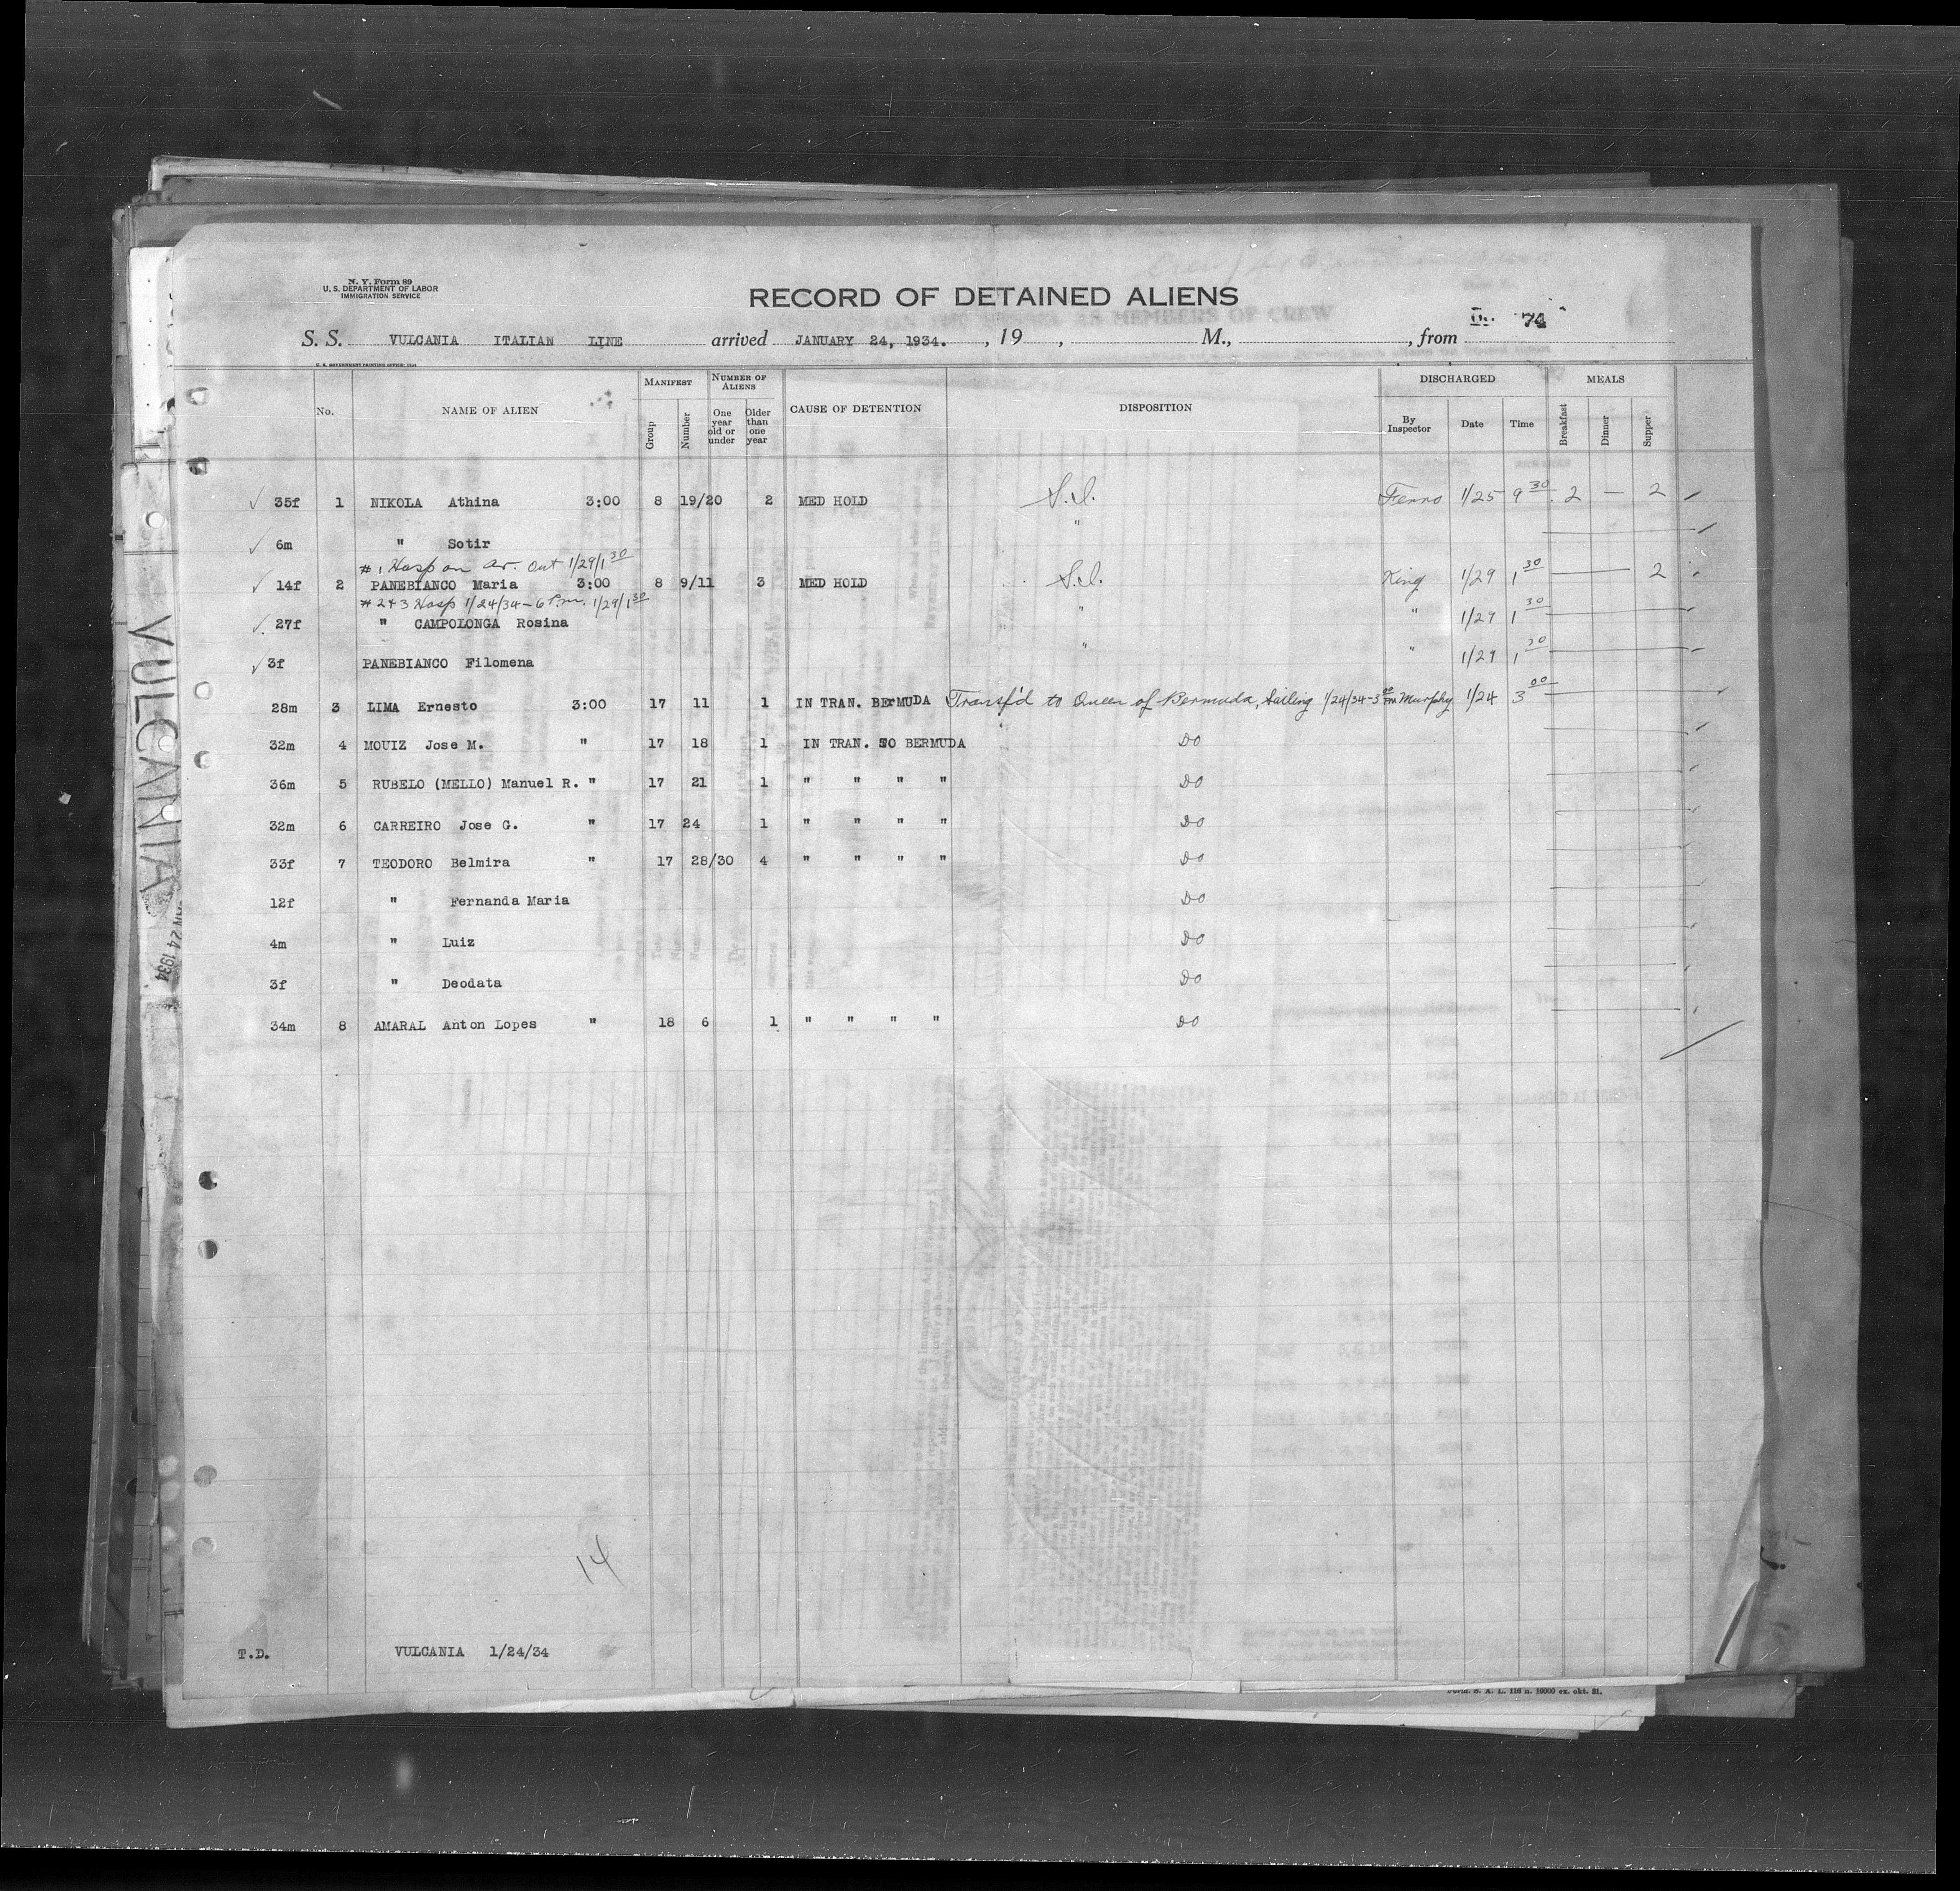 N. Y. Form 89
U. S. DEPARTMENT OF LABOR
IMMIGRATION SERVICE
RECORD OF DETAINED ALIENS
74
S. S. VULCANIA ITALIAN LINE arrived JANUARY 24, 1934. , 19 , M., , from
U. S. GOVERNMENT PRINTING OFFICE: 1931
No. NAME OF ALIEN MANIFEST Group Number NUMBER OF ALIENS One year old or under Older than one year CAUSE OF DETENTION DISPOSITION DISCHARGED By Inspector Date Time MEALS Breakfast Dinner Supper
35f 1 NIKOLA Athina 3:00 8 19/20 2 MED HOLD S.I. Ferro 1/25 9 30 2 — 2
6m " Sotir "
# 1 Hosp on Ar. Out 1/29/1 30
14f 2 PANEBIANCO Maria 3:00 8 9/11 3 MED HOLD S.I. King 1/29 1 30 2
# 2+3 Hosp 1/24/34 - 6 P.m. 1/29/1 30
27f " CAMPOLONGA Rosina " " 1/29 1 30
3f PANEBIANCO Filomena " " 1/29 1 30
28m 3 LIMA Ernesto 3:00 17 11 1 IN TRAN. BERMUDA Transf'd to Queen of Bermuda, Sailing 1/24/34-3 00 PM Murphy 1/24 3 00
32m 4 MOUIZ Jose M. " 17 18 1 IN TRAN. TO BERMUDA DO
36m 5 RUBELO (MELLO) Manuel R. " 17 21 1 " " " " DO
32m 6 CARREIRO Jose G. " 17 24 1 " " " " DO
33f 7 TEODORO Belmira " 17 28/30 4 " " " " DO
12f " Fernanda Maria DO
4m " Luiz DO
3f " Deodata DO
34m 8 AMARAL Anton Lopes " 18 6 1 " " " " DO
14
T.D. VULCANIA 1/24/34
VULCANIA
JAN 24 1934
Form. S. A. L. 116 n. 10000 ex. okt. 31.